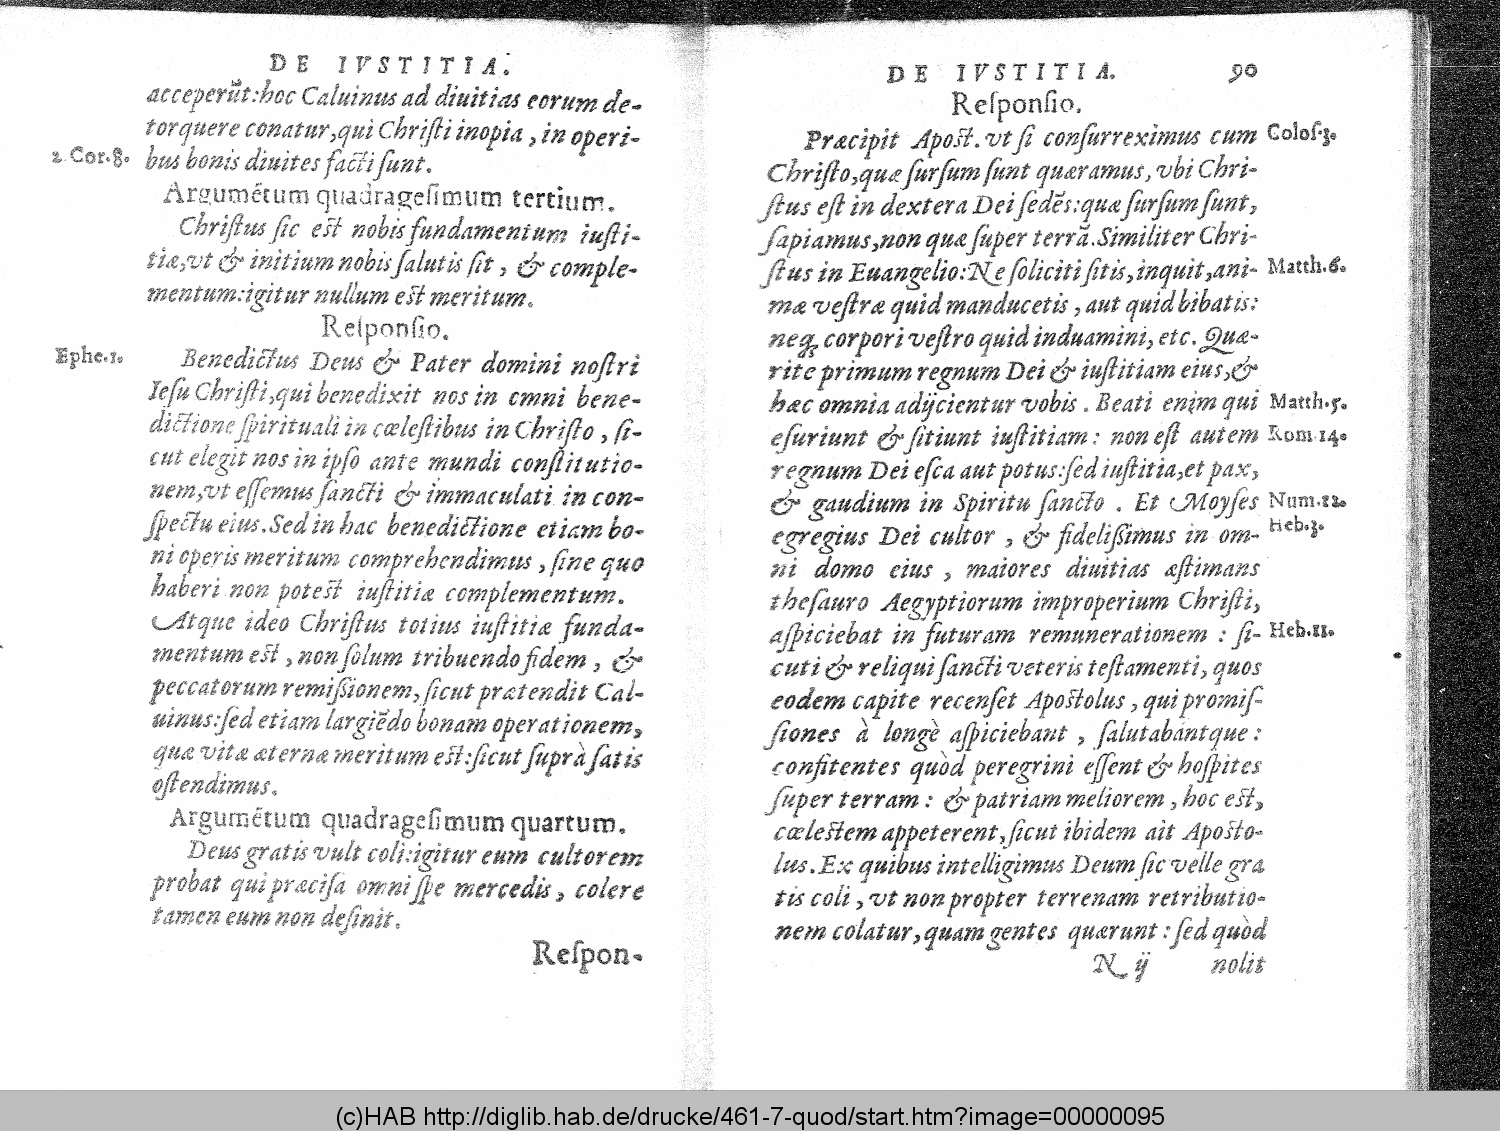 DE IVSTITIA.
acceperūt:hoc Caluinus ad diuitias eorum de-
torquere conatur,qui Chriſti inopia, in operi-
2. Cor. 8. bus bonis diuites facti ſunt.
Argumētum quadrageſimum tertium.
Chriſtus ſic est nobis fundamentum iuſti-
tiæ,vt & initium nobis ſalutis ſit, & comple-
mentum:igitur nullum est meritum.
Reſponſio.
Ephe. 1. Benedictus Deus & Pater domini noſtri
Ieſu Chriſti,qui benedixit nos in omni bene-
dictione ſpirituali in cæleſtibus in Chriſto, ſi-
cut elegit nos in ipſo ante mundi conſtitutio-
nem,vt eſſemus ſancti & immaculati in con-
ſpectu eius. Sed in hac benedictione etiam bo-
ni operis meritum comprehendimus, ſine quo
haberi non potest iuſtitiæ complementum.
Atque ideo Chriſtus totius iuſtitiæ funda-
mentum est, non ſolum tribuendo fidem, &
peccatorum remiſſionem, ſicut prætendit Cal-
uinus:ſed etiam largiēdo bonam operationem,
quæ vitæ æternæ meritum est:ſicut ſuprà ſatis
oſtendimus.
Argumētum quadrageſimum quartum.
Deus gratis vult coli:igitur eum cultorem
probat qui præciſa omni ſpe mercedis, colere
tamen eum non deſinit.
Reſpon-
DE IVSTITIA. 90
Reſponſio.
Præcipit Apost. vt ſi conſurreximus cum Coloſ. 3.
Chriſto,quæ ſurſum ſunt quæramus, vbi Chri-
ſtus eſt in dextera Dei ſedēs:quæ ſurſum ſunt,
ſapiamus,non quæ ſuper terrā. Similiter Chri-
ſtus in Euangelio: Ne ſoliciti ſitis,inquit,ani- Matth. 6.
mæ veſtræ quid manducetis, aut quid bibatis:
neq; corpori veſtro quid induamini, etc. Quæ-
rite primum regnum Dei & iuſtitiam eius,&
hæc omnia adijcientur vobis. Beati enim qui Matth. 5.
eſuriunt & ſitiunt iuſtitiam: non eſt autem Rom 14.
regnum Dei eſca aut potus:ſed iuſtitia,et pax,
& gaudium in Spiritu ſancto. Et Moyſes Num. 12.
egregius Dei cultor, & fideliſſimus in om- Heb. 3.
ni domo eius, maiores diuitias æſtimans
theſauro Aegyptiorum improperium Chriſti,
aſpiciebat in futuram remunerationem: ſi- Heb. 11.
cuti & reliqui ſancti veteris teſtamenti, quos
eodem capite recenſet Apostolus, qui promiſ-
ſiones à longè aſpiciebant, ſalutabantque:
confitentes quòd peregrini eſſent & hoſpites
ſuper terram: & patriam meliorem, hoc est,
cælestem appeterent, ſicut ibidem ait Aposto-
lus. Ex quibus intelligimus Deum ſic velle gra
tis coli, vt non propter terrenam retributio-
nem colatur, quam gentes quærunt: ſed quòd
N ij nolit
(c)HAB http://diglib.hab.de/drucke/461-7-quod/start.htm?image=00000095